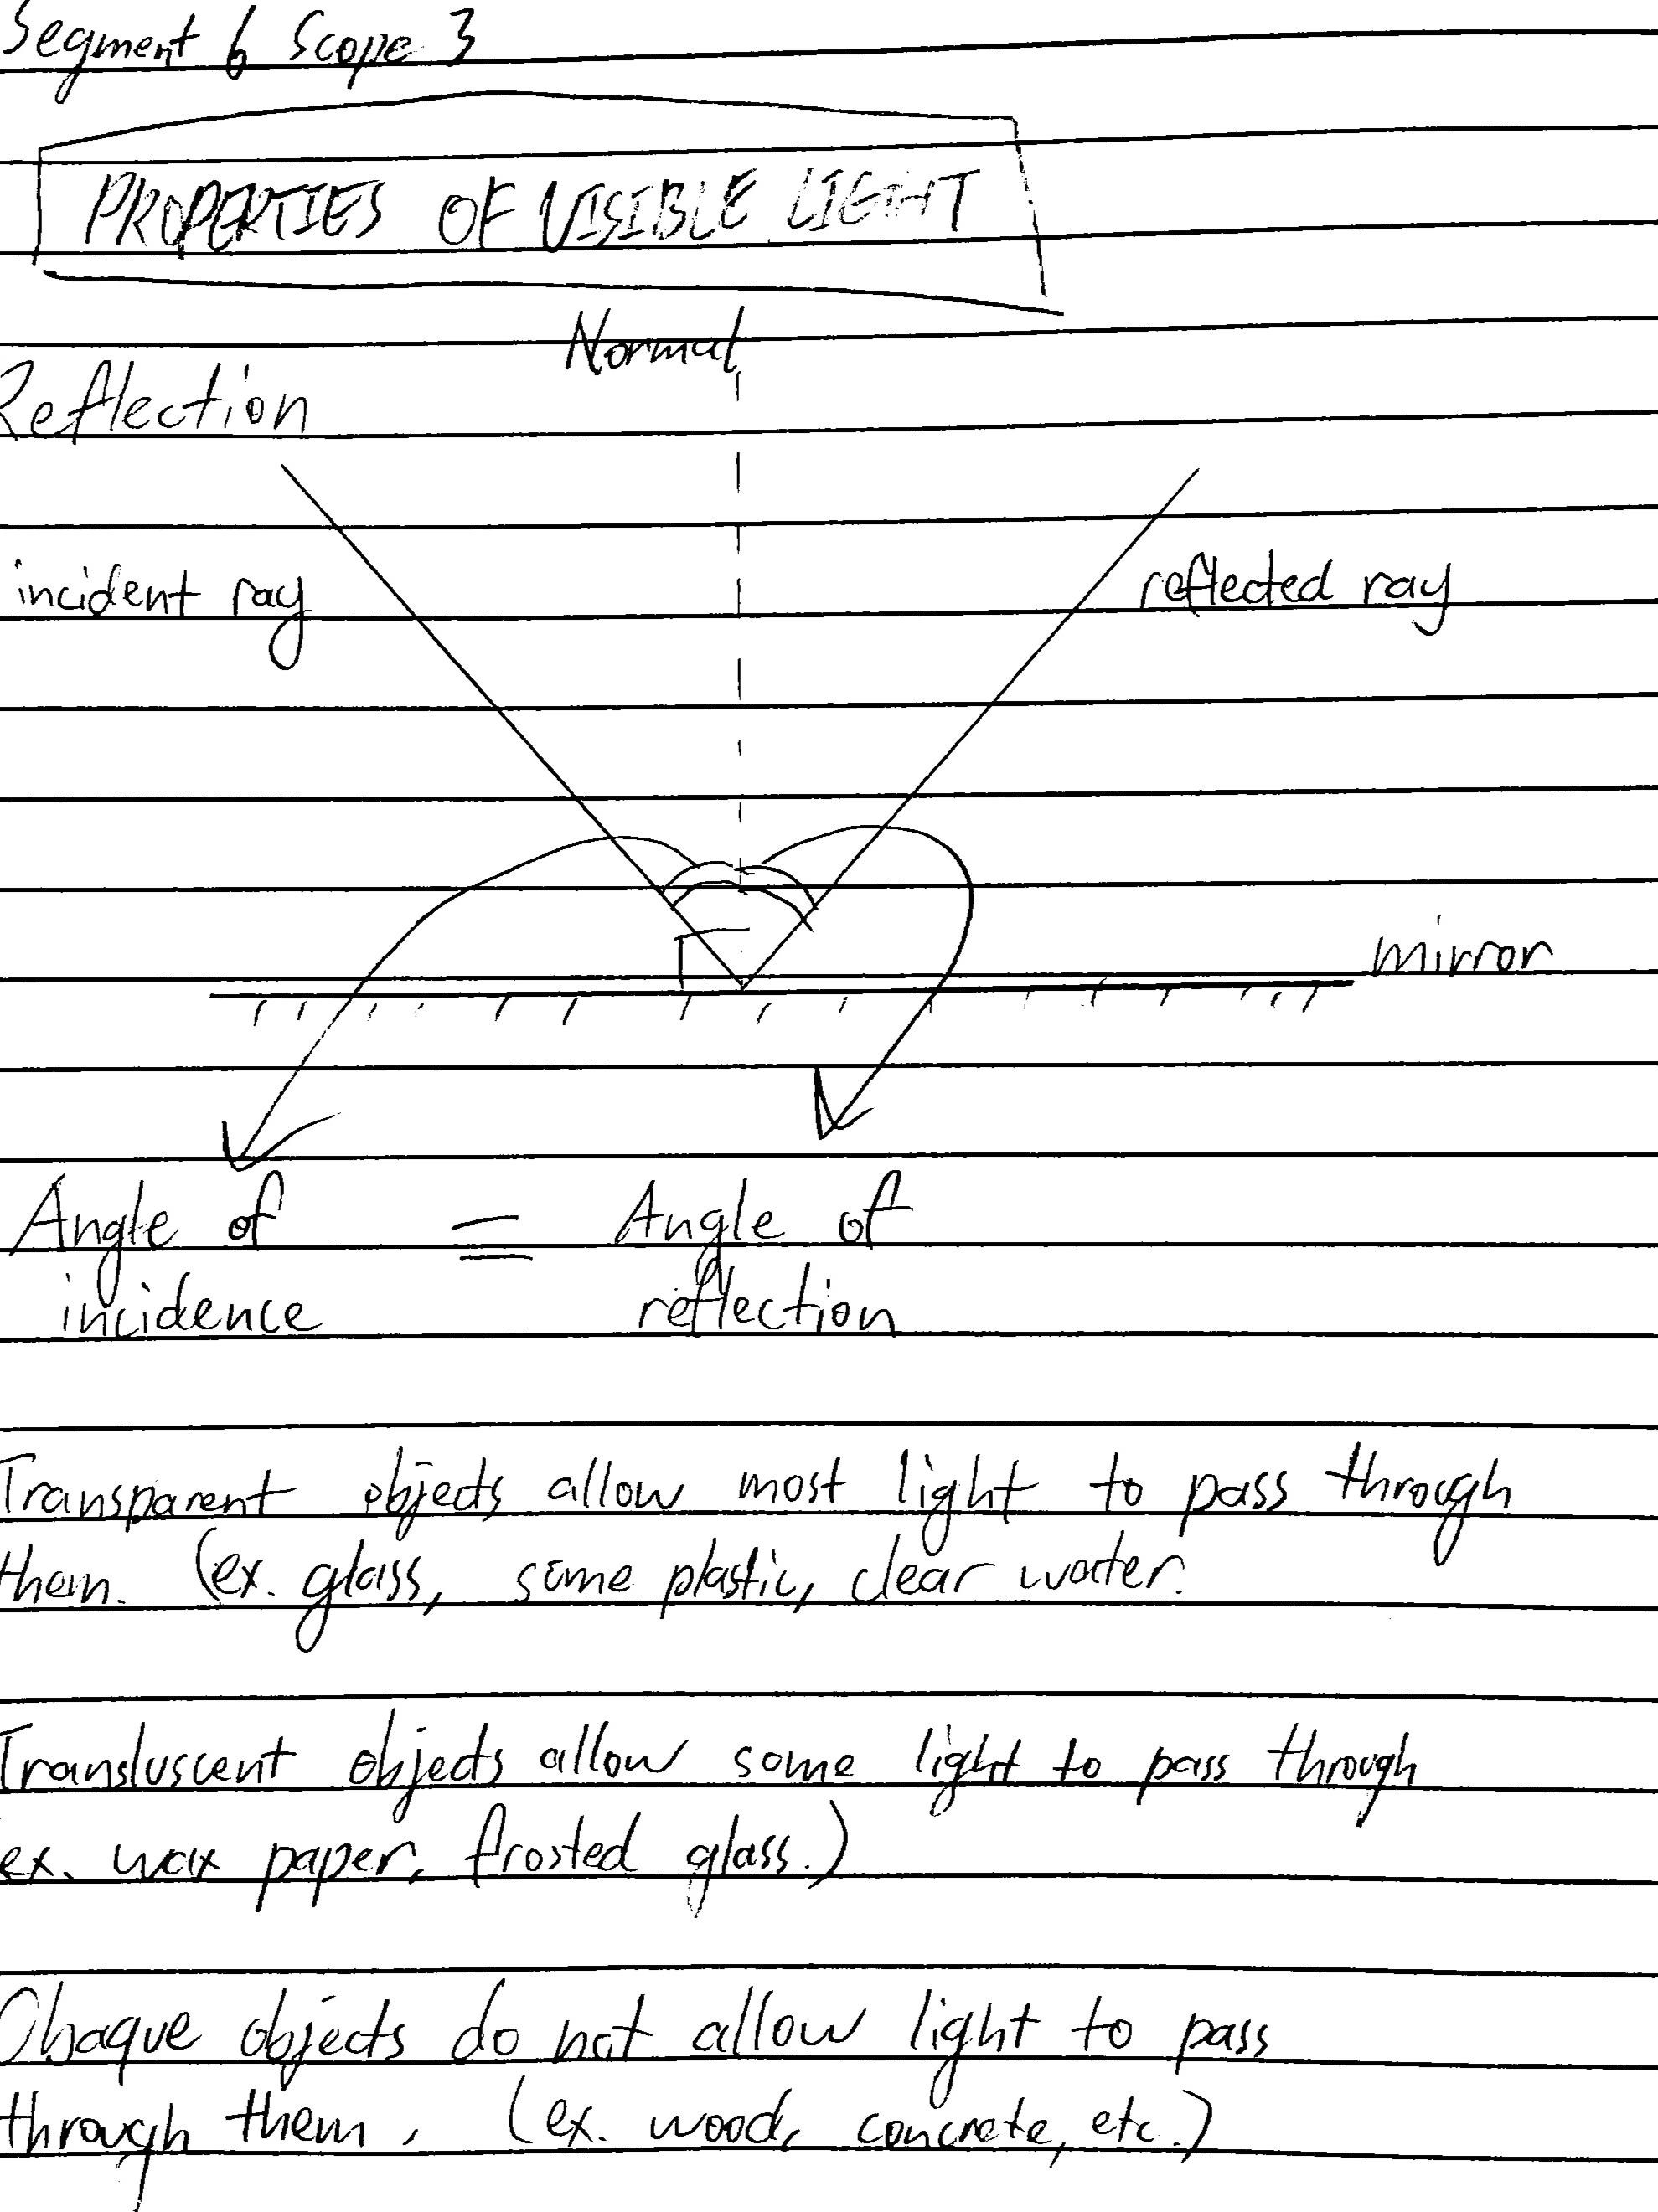 Segment 6 Scope 3
PROPERTIES OF VISIBLE LIGHT
Normal
Reflection
incident ray
reflected ray
mirror
Angle of = Angle of
incidence reflection
Transparent objects allow most light to pass through
them. (ex. glass, some plastic, clear water.
Transluscent objects allow some light to pass through
ex. wax paper, frosted glass.)
Obaque objects do not allow light to pass
through them. (ex. wood, concrete, etc.)